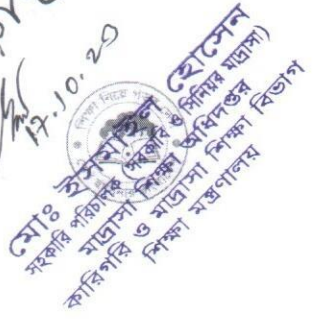 17.10.20
শিক্ষা নিয়ে গড়ব
মোঃ ইসমাইল হোসেন
সহকারি পরিচালক (সরকারি ও সিনিয়র মাদ্রাসা)
মাদ্রাসা শিক্ষা অধিদপ্তর
কারিগরি ও মাদ্রাসা শিক্ষা বিভাগ
শিক্ষা মন্ত্রণালয়